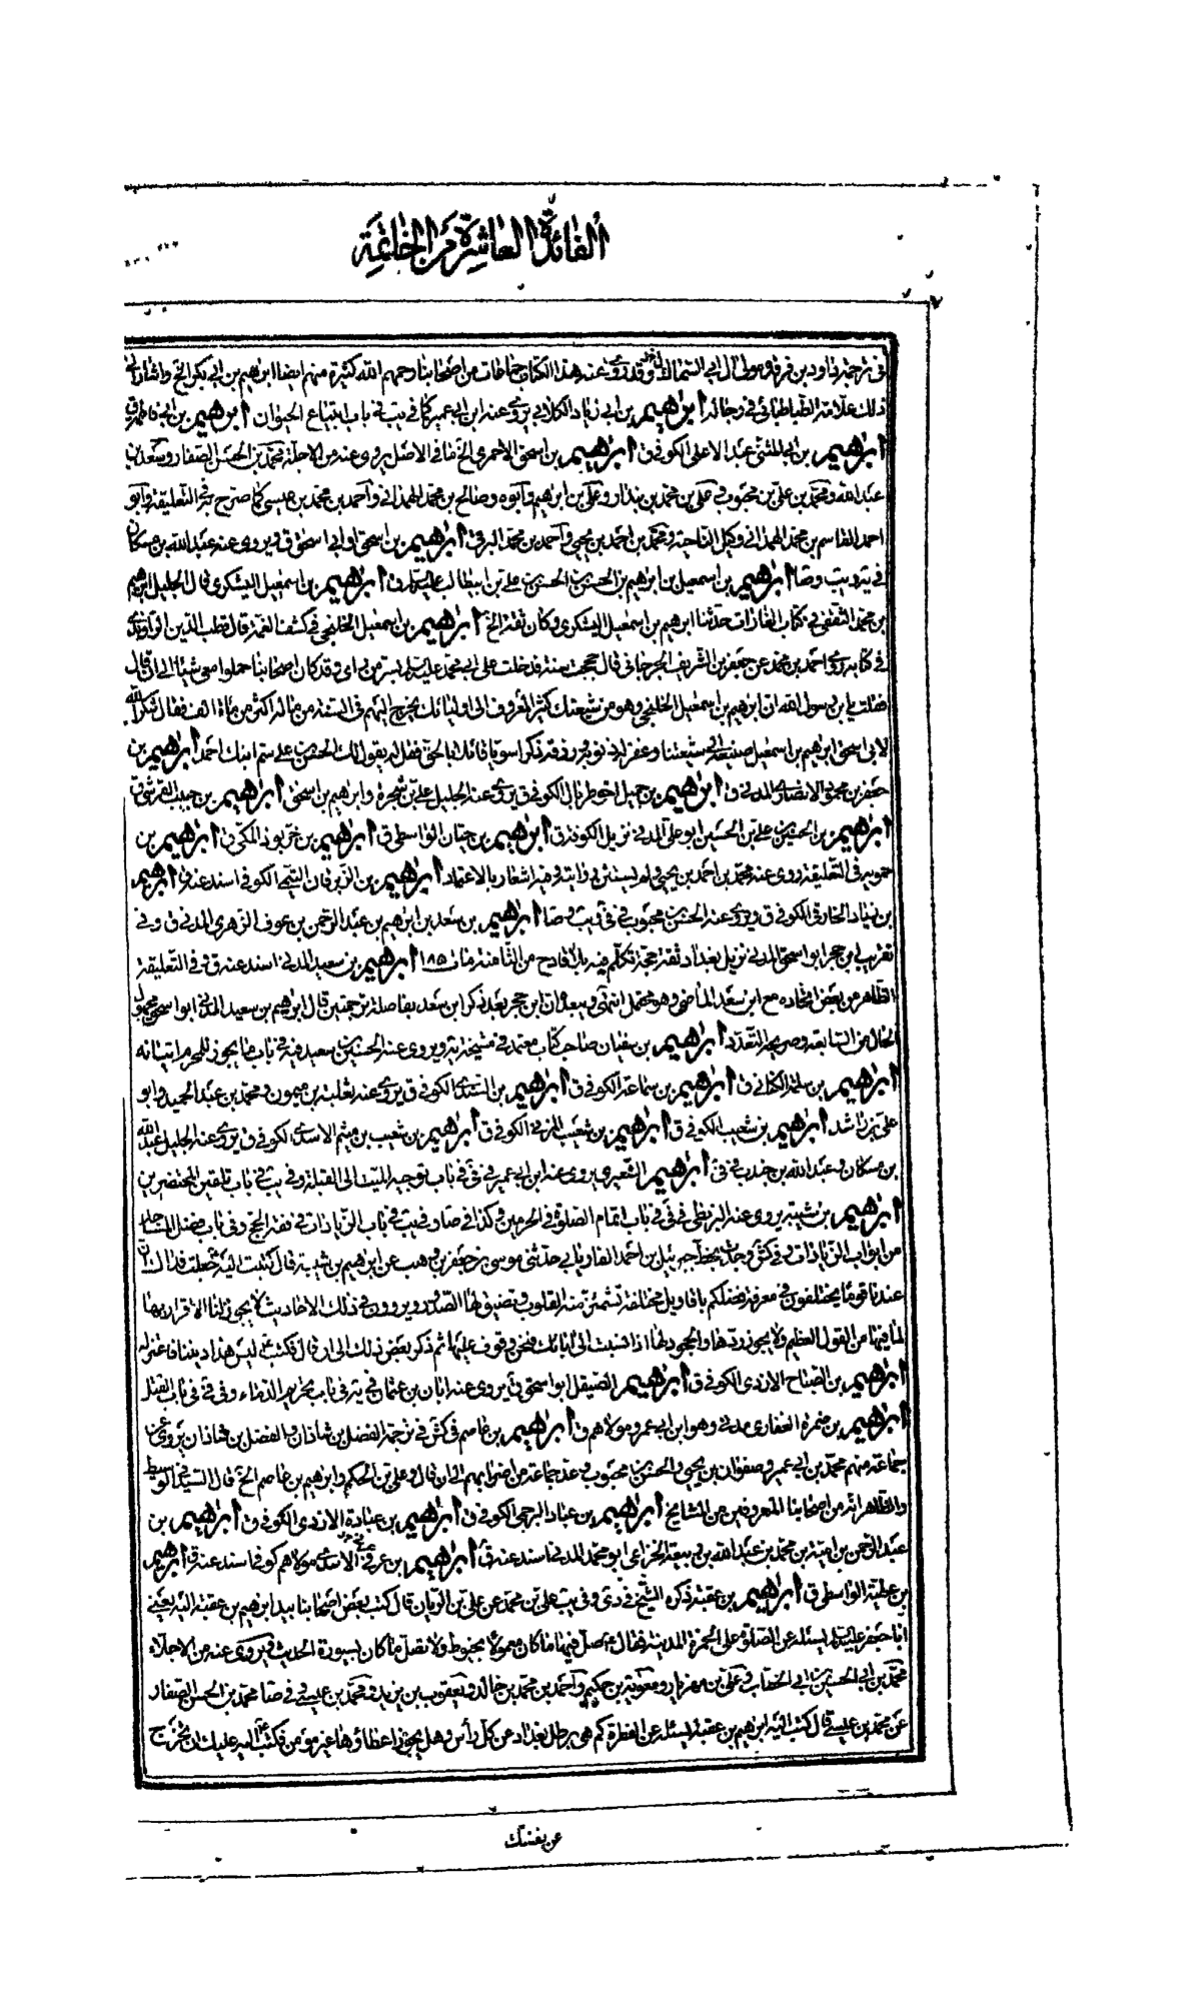 الفائدة العاشرة من الخاتمة
فى ترجمة داود بن فرقد مولى آل ابى السمال وقد روى عنه هذا الكتاب جماعات من اصحابنا رحمهم الله كثيرة منهم ايضا ابراهيم بن ابى بكر الخ واشار الى
ذلك علامة الطباطبائى فى رجاله ابراهيم بن ابى زياد الكلابى يروى عنه ابن ابى عمير كما فى يب فى باب ابتياع الحيوان ابراهيم بن ابى فاطمة ق
ابراهيم بن ابى المثنى عبد الاعلى الكوفى ق ابراهيم بن اسحق الاحمرى الخ ما فى الاصل يروى عنه من الاجلة محمد بن الحسن الصفار وسعد بن
عبد الله ومحمد بن على بن محبوب وعلى بن محمد بن بندار وعلى بن ابراهيم وابوه وصالح بن محمد الهمدانى واحمد بن محمد بن عيسى كما صرح به فى التعليقة وابو
احمد القاسم بن محمد الهمدانى وكيل الناحية ومحمد بن احمد بن يحيى واحمد بن محمد البرقى ابراهيم بن اسحق او ابى اسحق ق ويروى عنه عبد الله بن مسكان
فى يه ويب وصا ابراهيم بن اسمعيل بن ابراهيم بن الحسن بن الحسن بن على بن ابيطالب عليه السلام ق ابراهيم بن اسمعيل اليشكرى قال الجليل ابراهيم
بن محمد الثقفى فى كتاب الغارات حدثنا ابراهيم بن اسمعيل اليشكرى وكان ثقة الخ ابراهيم بن اسمعيل الخلنجى فى كشف الغمة قال قطب الدين الراوندى
فى كتابه روى احمد بن محمد عن جعفر بن الشريف الجرجانى قال حججت سنة فدخلت على ابى محمد عليه السلام بسر من راى وقد كان اصحابنا حملوا معى شيئا الى ان قال
فقلت يابن رسول الله ان ابراهيم بن اسمعيل الخلنجى وهو من شيعتك كثير المعروف الى اوليائك يخرج اليهم فى السنة من ماله اكثر من مائة الف فقال شكر الله
لابى اسحق ابراهيم بن اسمعيل صنيعه الى شيعتنا وغفر له ذنوبه ورزقه ذكرا سويا قائلا بالحق فقل له يقول لك الحسن بن على سم ابنك احمد ابراهيم بن
جعفر بن محمود الانصارى المدنى ق ابراهيم بن جميل اخو طربال الكوفى ق يروى عنه الجليل على بن شجرة وابراهيم بن اسحق ابراهيم بن حبيب القرشى ق
ابراهيم بن الحسين بن على بن الحسين ابو على المدنى نزيل الكوفة ق ابراهيم بن حيان الواسطى ق ابراهيم بن خربوذ المكى ق ابراهيم بن
حمويه فى التعليقة روى عنه محمد بن احمد بن يحيى ولم يستثن روايته وفيه اشعار بالاعتماد ابراهيم بن الزبرقان التيمى الكوفى اسند عنه ق ابراهيم
بن زياد الخارفى الكوفى ق ويروى عنه الحسن بن محبوب فى فى ويب وصا ابراهيم بن سعد بن ابراهيم بن عبد الرحمن بن عوف الزهرى المدنى ق وفى
تقريب ابن حجر ابو اسحق المدنى نزيل بغداد ثقة حجة تكلم فيه بلا قادح من الثامنة مات ١٨٥ ابراهيم بن سعيد المدنى اسند عنه ق وفى التعليقة
الظاهر من بعض اتحاده مع ابن سعد الماضى وهو محتمل انتهى ويبعد ان ابن حجر بعد ذكر ابن سعد بفاصلة ترجمتين قال ابراهيم بن سعيد المدنى ابو اسحق مجهول
الحال من السابعة وصريحه التعدد ابراهيم بن سفيان صاحب كتاب معتمد فى مشيخة يه ويروى عنه الحسين بن سعيد فيه فى باب ما يجوز للمحرم اتيانه
ابراهيم بن سلمة الكنانى ق ابراهيم بن سماعة الكوفى ق ابراهيم بن السندى الكوفى ق يروى عنه ثعلبة بن ميمون ومحمد بن عبد الحميد وابو
على بن راشد ابراهيم بن شعيب الكوفى ق ابراهيم بن شعيب المزنى الكوفى ق ابراهيم بن شعيب بن ميثم الاسدى الكوفى ق يروى عنه الجليل عبد الله
بن مسكان وعبد الله بن جندب فى فى ابراهيم الشعيرى يروى عنه ابن ابى عمير فى فى فى باب توجيه الميت الى القبلة وفى يب فى باب تلقين المحتضرين
ابراهيم بن شيبة يروى عنه البزنطى فى فى فى باب اتمام الصلوة فى الحرمين وكذا فى صا وفى يب فى باب الزيادات فى فقه الحج وفى باب فضل المساجد
من ابواب الزيادات وفى كش وجدت بخط جبرئيل بن احمد الفاريابى حدثنى موسى بن جعفر بن وهب عن ابراهيم بن شيبة قال كتبت اليه جعلت فداك ان
عندنا قوما يختلفون فى معرفة فضلكم باقاويل مختلفة تشمئز منه القلوب وتضيق لها الصدور ويروون فى ذلك الاحاديث لا يجوز لنا الاقرار بها
لما فيها من القول العظيم ولا يجوز ردها والجحود لها اذا نسبت الى آبائك فنحن وقوف عليها ثم ذكر بعض ذلك الى ان قال فكتب ع ليس هذا ديننا فاعتزله
ابراهيم بن الصباح الازدى الكوفى ق ابراهيم الصيقل ابو اسحق ق يروى عنه ابان بن عثمان فى يه فى باب تحريم الدماء وفى فى فى باب القتل
ابراهيم بن ضمرة الغفارى مدنى وهو ابن ابى عمرو مولاهم ق ابراهيم بن عاصم فى كش فى ترجمة الفضل بن شاذان والفضل بن شاذان يروى عن
جماعة منهم محمد بن ابى عمير وصفوان بن يحيى والحسن بن محبوب وعد جماعة من اضرابهم الى ان قال وعلى بن الحكم وابراهيم بن عاصم الخ قال السيد فى الوسيط
والظاهر انه من اصحابنا المعروفين من المشايخ ابراهيم بن عباد البرجمى الكوفى ق ابراهيم بن عبادة الازدى الكوفى ق ابراهيم بن
عبد الرحمن بن امية بن محمد بن عبد الله بن ربيعة الخزاعى ابو محمد المدنى اسند عنه ق ابراهيم بن عربى الاسدى مولاهم كوفى اسند عنه ق ابراهيم
بن عطية الواسطى ق ابراهيم بن عقبة ذكره الشيخ فى دى وفى يب على بن محمد عن على بن الريان قال كتب بعض اصحابنا بيد ابراهيم بن عقبة اليه يعنى
ابا جعفر عليه السلام يسئله عن الصلوة على الخمرة المدنية فقال ع صل فيها ما كان معمولا بخيوط ولا تصل ما كان بسيورة الحديث ويروى عنه من الاجلاء
محمد بن ابى الحسين بن ابى الخطاب وعلى بن مهزيار ومعوية بن حكيم واحمد بن محمد بن خالد ويعقوب بن يزيد ومحمد بن عيسى وفى صا محمد بن الحسن الصفار
عن محمد بن عيسى قال كتب اليه ابراهيم بن عقبة يسئله عن الفطرة كم هى برطل بغداد عن كل راس وهل يجوز اعطاؤها غير مؤمن فكتب ع اليه عليك ان تخرج
عن نفسك